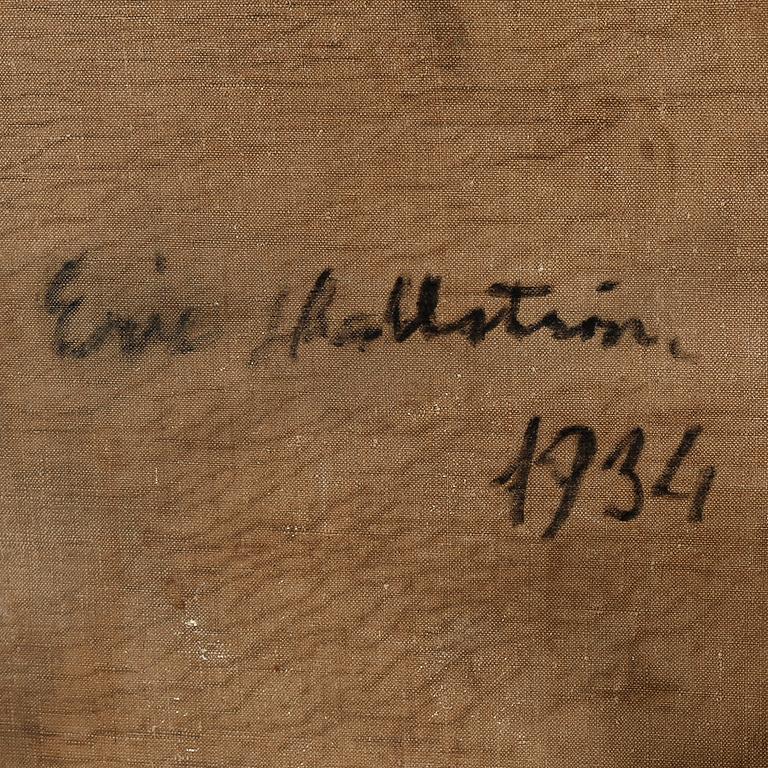 Eric Hallström.
1934